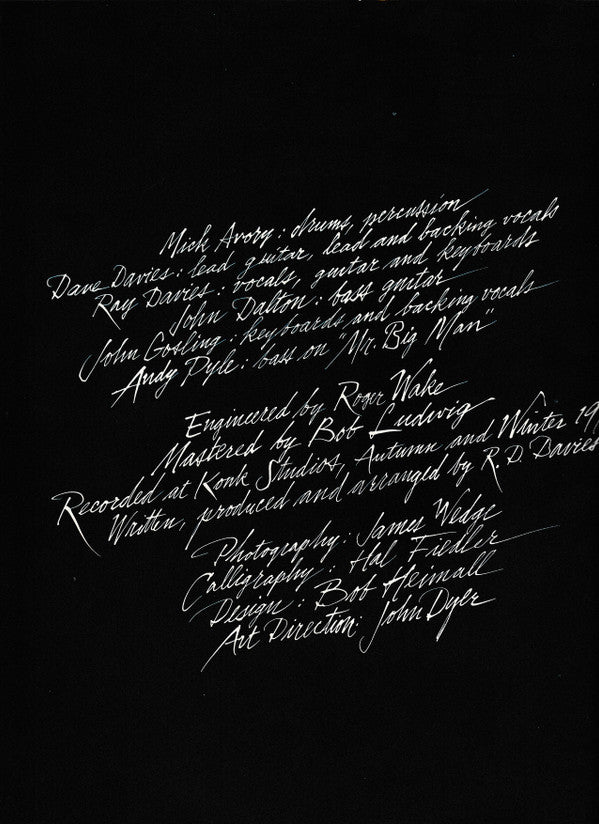 Mick Avory: drums, percussion
Dave Davies: lead guitar, lead and backing vocals
Ray Davies: vocals, guitar and keyboards
John Dalton: bass guitar
John Gosling: keyboards and backing vocals
Andy Pyle: bass on "Mr. Big Man"
Engineered by Roger Wake
Mastered by Bob Ludwig
Recorded at Konk Studios, Autumn and Winter 19
Written, produced and arranged by R. D. Davies
Photography: James Wedge
Calligraphy: Hal Fiedler
Design: Bob Heimall
Art Direction: John Dyer